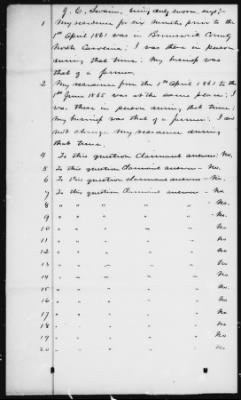 J. C. Swain, being duly sworn says:-
1 My residence for six months prior to the
1st April 1861 was in Brunswick County
North Carolina; I was there in person
during that time; My business was
that of a farmer.
2 My residence from the 1st April 1861 to the
1st June 1865 was at the same place; I
was there in person during that time;
My business was that of a farmer; I did
not change my residence during
that time.
4 To this question Claimant answers: No.
5 To this question Claimant answers - No.
6 To this question claimant answers - No.
7 To this question Claimant answers - No
8 " " " " " No.
9 " " " " " No.
10 " " " " " No.
11 " " " " " No.
12 " " " " " No.
13 " " " " " No
14 " " " " " No
15 " " " " " No.
16 " " " " " No.
17 " " " " " No
18 " " " " " No
19 " " " " " No.
20 " " " " " No.